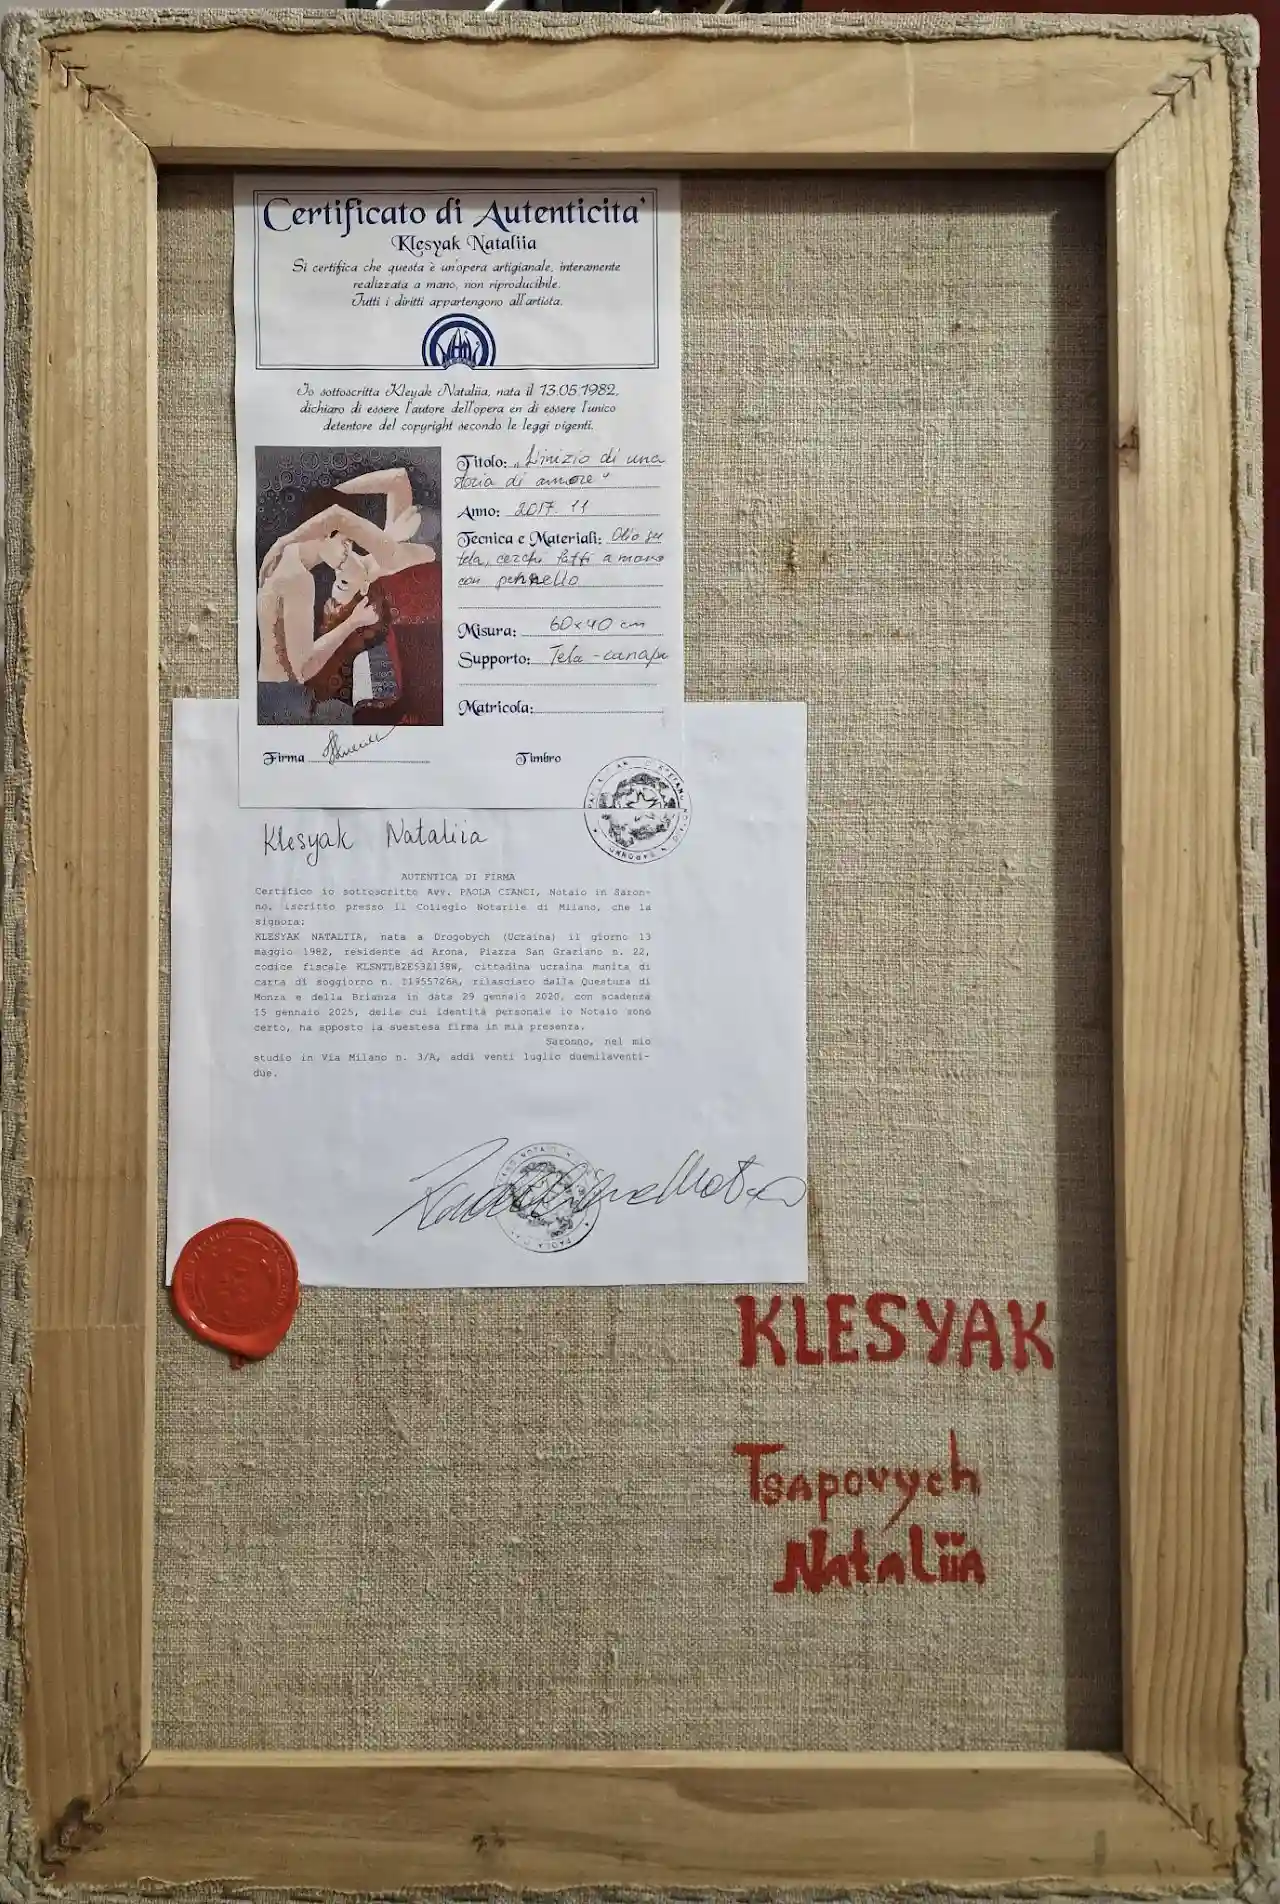 Certificato di Autenticita'
Klesyak Nataliia
Si certifica che questa è un'opera artigianale, interamente
realizzata a mano, non riproducibile.
Tutti i diritti appartengono all'artista.
Io sottoscritta Kleyak Nataliia, nata il 13.05.1982,
dichiaro di essere l'autore dell'opera en di essere l'unico
detentore del copyright secondo le leggi vigenti.
Titolo: „L'inizio di una
storia di amore"
Anno: 2017. 11
Tecnica e Materiali: Olio su
tela, cerchi fatti a mano
con pennello
Misura: 60x40 cm
Supporto: Tela-canapa
Matricola:
Firma
Timbro
Klesyak Nataliia
AUTENTICA DI FIRMA
Certifico io sottoscritto Avv. PAOLA CIANCI, Notaio in Saron-
no, iscritto presso il Collegio Notarile di Milano, che la
signora:
KLESYAK NATALIIA, nata a Drogobych (Ucraina) il giorno 13
maggio 1982, residente ad Arona, Piazza San Graziano n. 22,
codice fiscale KLSNTL82E53Z138W, cittadina ucraina munita di
carta di soggiorno n. I1955726A, rilasciato dalla Questura di
Monza e della Brianza in data 29 gennaio 2020, con scadenza
15 gennaio 2025, della cui identità personale io Notaio sono
certo, ha apposto la suestesa firma in mia presenza.
Saronno, nel mio
studio in Via Milano n. 3/A, addì venti luglio duemilaventi-
due.
KLESYAK
Tsapovych
Nataliia